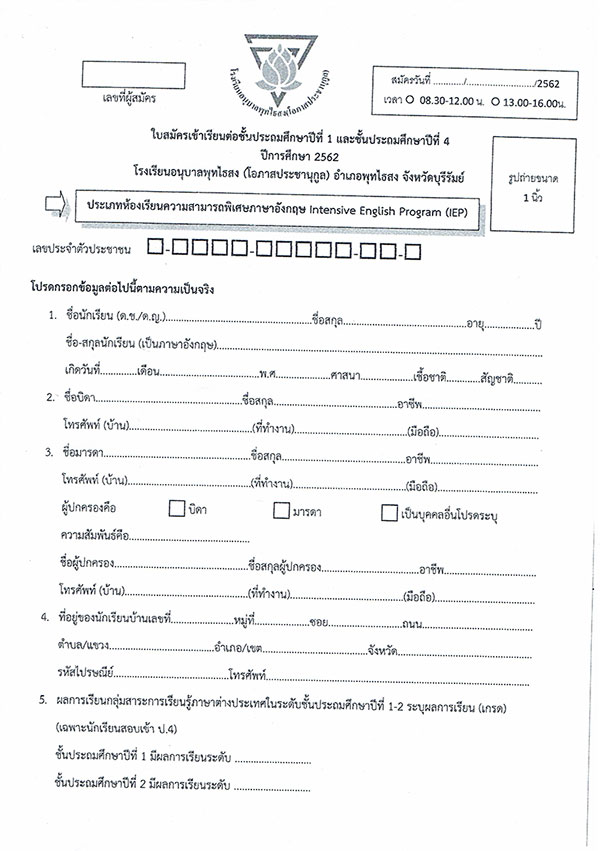 โรงเรียนอนุบาลพุทไธสง(โอภาสประชานุกูล)
เลขที่ผู้สมัคร
สมัครวันที่ ............/........................./2562
เวลา O 08.30-12.00 น. O 13.00-16.00น.
ใบสมัครเข้าเรียนต่อชั้นประถมศึกษาปีที่ 1 และชั้นประถมศึกษาปีที่ 4
ปีการศึกษา 2562
โรงเรียนอนุบาลพุทไธสง (โอภาสประชานุกูล) อำเภอพุทไธสง จังหวัดบุรีรัมย์
รูปถ่ายขนาด
1 นิ้ว
ประเภทห้องเรียนความสามารถพิเศษภาษาอังกฤษ Intensive English Program (IEP)
เลขประจำตัวประชาชน
โปรดกรอกข้อมูลต่อไปนี้ตามความเป็นจริง
1. ชื่อนักเรียน (ด.ช./ด.ญ.)..................ชื่อสกุล..................อายุ..................ปี
ชื่อ-สกุลนักเรียน (เป็นภาษาอังกฤษ)..................
เกิดวันที่............เดือน..................พ.ศ..................ศาสนา..................เชื้อชาติ............สัญชาติ..........
2. ชื่อบิดา..................ชื่อสกุล..................อาชีพ..................
โทรศัพท์ (บ้าน)..................(ที่ทำงาน)..................(มือถือ)..................
3. ชื่อมารดา..................ชื่อสกุล..................อาชีพ..................
โทรศัพท์ (บ้าน)..................(ที่ทำงาน)..................(มือถือ)..................
ผู้ปกครองคือ บิดา มารดา เป็นบุคคลอื่นโปรดระบุ
ความสัมพันธ์คือ..................
ชื่อผู้ปกครอง..................ชื่อสกุลผู้ปกครอง..................อาชีพ..................
โทรศัพท์ (บ้าน)..................(ที่ทำงาน)..................(มือถือ)..................
4. ที่อยู่ของนักเรียนบ้านเลขที่..................หมู่ที่..................ซอย..................ถนน..................
ตำบล/แขวง..................อำเภอ/เขต..................จังหวัด..................
รหัสไปรษณีย์..................โทรศัพท์..................
5. ผลการเรียนกลุ่มสาระการเรียนรู้ภาษาต่างประเทศในระดับชั้นประถมศึกษาปีที่ 1-2 ระบุผลการเรียน (เกรด)
(เฉพาะนักเรียนสอบเข้า ป.4)
ชั้นประถมศึกษาปีที่ 1 มีผลการเรียนระดับ ........................
ชั้นประถมศึกษาปีที่ 2 มีผลการเรียนระดับ ........................